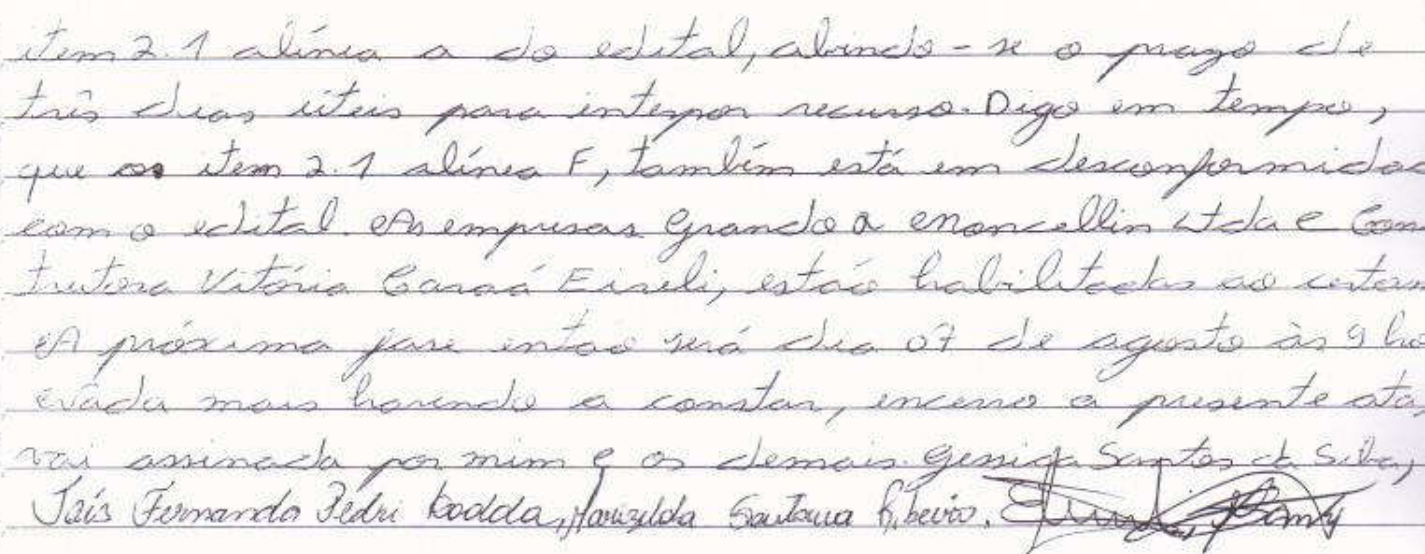 item 2.1 alínea a do edital, abindo-se o prazo de
três dias úteis para interpor recurso. Digo em tempo,
que os item 2.1 alínea F, também está em desconformidad
com o edital. As empresas Grando a Moncellin Ltda e Cons
trutora Vitória Canaá Eireli, estão habilitadas ao certam
A próxima fase então será dia 07 de agosto às 9 ho
Nada mais havendo a constar, encerro a presente ata,
vai assinada por mim e os demais. Gessica Santos da Silva,
Taís Fernanda Pedri Kodda, Marizilda Santana Ribeiro.